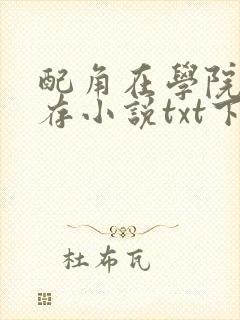 配角在學院
存小說txt下
杜布瓦